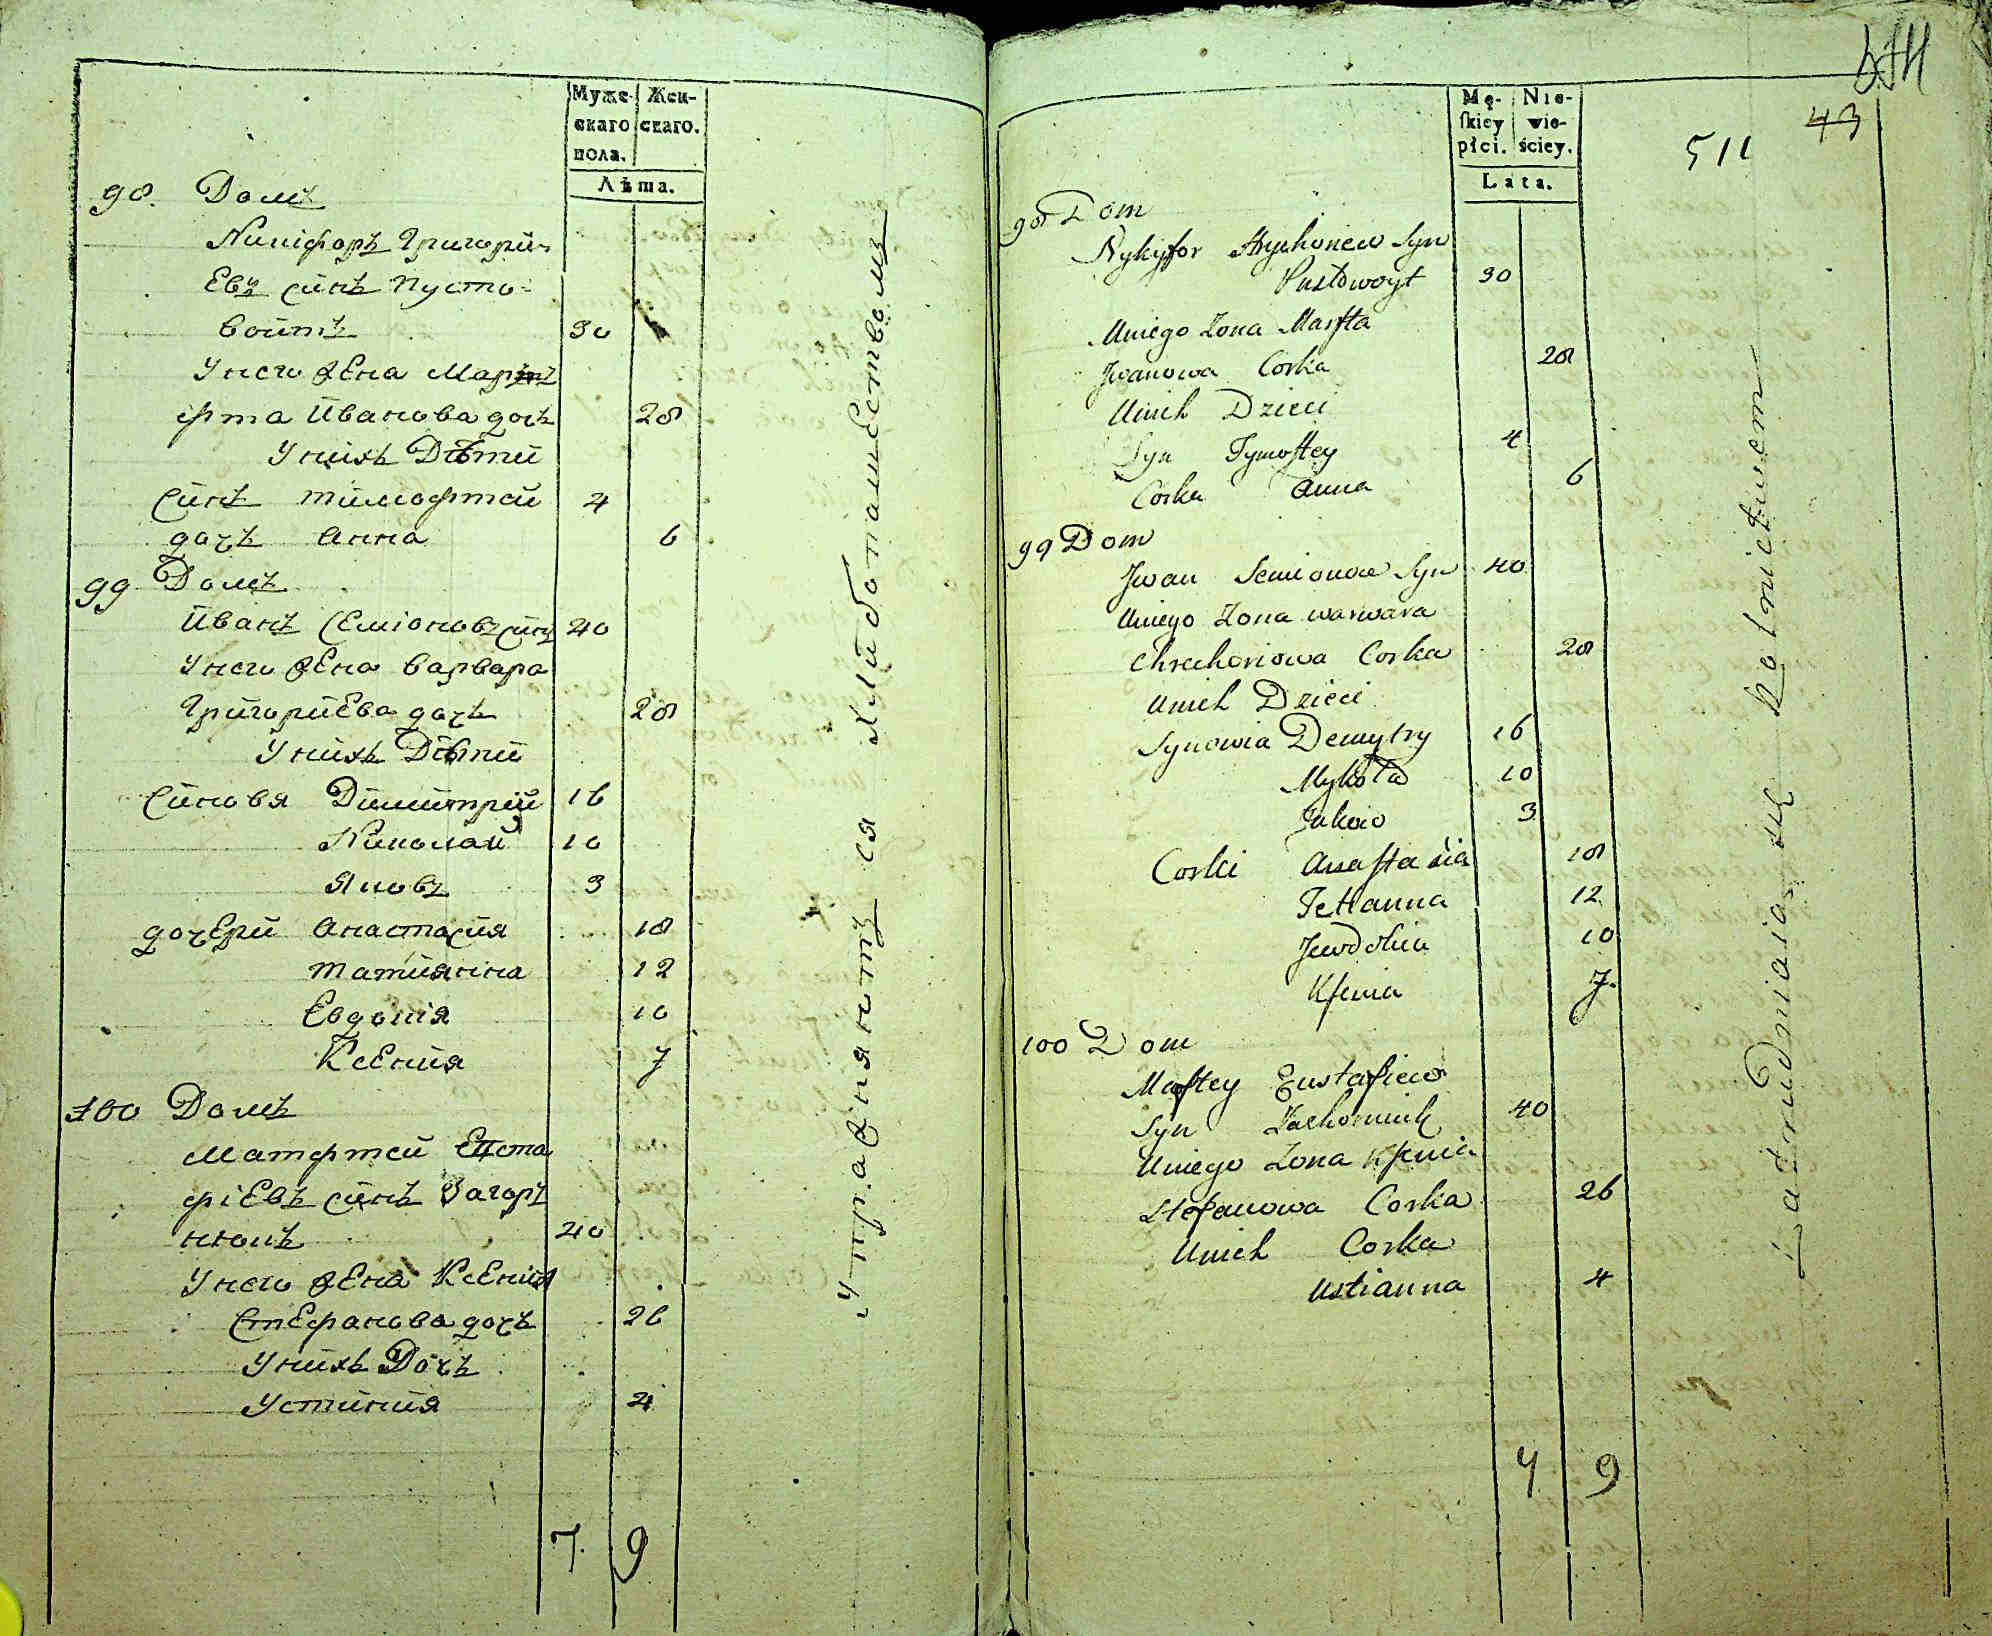 Муже- Жен-
скаго скаго.
пола.
Лѣта.
98. Домъ
Никіфоръ Григори-
Евъ синъ Пусто-
войтъ 30
У него жена Мар
фта Иванова дочь 28
У нихъ Дѣти
Синъ Тимофтей 4
дочь Анна 6
99 Домъ
Иванъ Семіоновъ синъ 40
У него жена Варвара
ГригориЕва дочь 28
У нихъ Дѣти
Синовя Димитрій 16
Николай 10
Яковъ 3
дочери Анастасия 18
Татиянна 12
Евдокія 10
Ксения 7
100 Домъ
Матфтей Еуста
фіЕвъ синъ Загор
нюкъ 40
У него жена Ксения
Стефанова дочь 26
У нихъ Дочь
Устиния 4
7. 9
Упражняются хлибопашеством
Mę- Nie-
skiey wie-
płci. ściey.
Lata.
43
511
98 Dom
Nykyfor Hryhoriew Syn
Pustowoyt 30
Uniego Zona Marfta
Jwanowa Corka 28
Unich Dzieci
Syn Tymoftey 4
Corka Anna 6
99 Dom
Jwan Semionow Syn 40
Uniego Zona warwara
Chrehoriowa Corka 28
Unich Dzieci
Synowia Demytry 16
Mykoła 10
Jakow 3
Corki Anastasia 18
Tetianna 12
Jewdokia 10
Ksenia 7.
100 Dom
Maftey Eustafiew
Syn Zachorniuk 40
Uniego Zona Ksenia
Stefanowa Corka 26
Unich Corka
Ustianna 4
7 9
Zatrudniaia się Rolnictwem